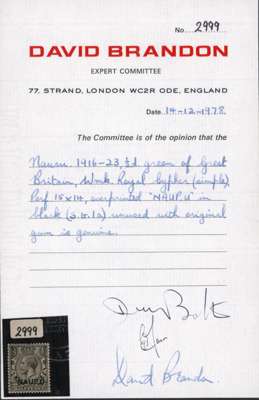 No. 2999
DAVID BRANDON
EXPERT COMMITTEE
77, STRAND, LONDON WC2R ODE, ENGLAND
Date 14-12-1978
The Committee is of the opinion that the
Nauru, 1916-23, ½d green of Great
Britain, Wmk Royal Cypher (simple),
Perf 15x14, overprinted "NAURU" in
black (S.G.1a) unused with original
gum is genuine.
David Brandon
2999
NAURU